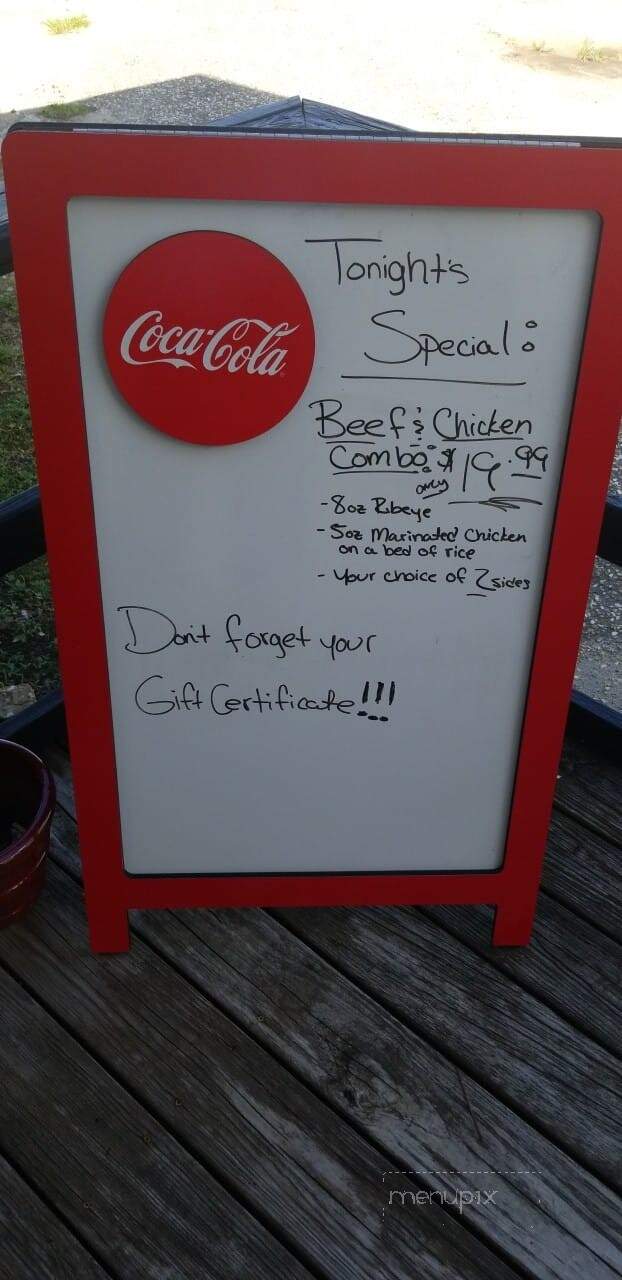 Coca-Cola
Tonight's
Special:
Beef & Chicken
Combo: $19.99
only
- 8oz Ribeye
- 5oz Marinated Chicken
on a bed of rice
- Your choice of 2 sides
Don't forget your
Gift Certificate!!!
menupix